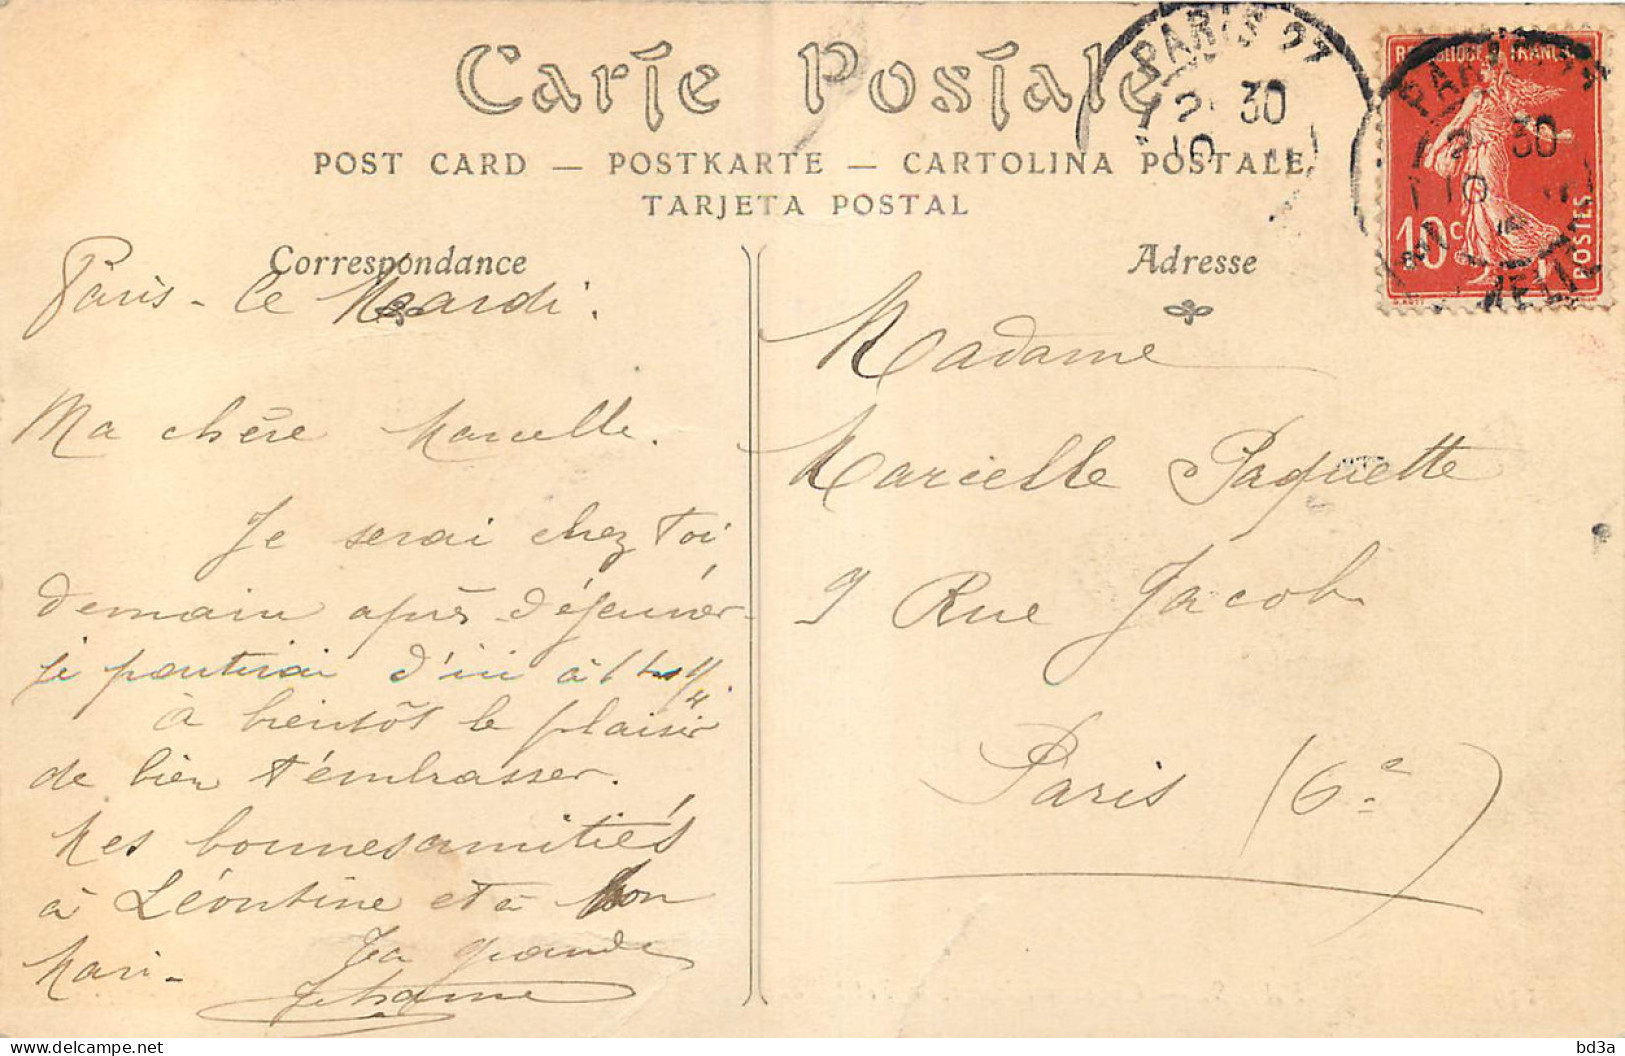 Carte Postale
POST CARD — POSTKARTE — CARTOLINA POSTALE
TARJETA POSTAL
Correspondance
Paris - le Mardi.
Ma chère Marcelle.
Je serai chez toi
demain après déjeuner
je partirai d'ici à 1 h 1/4.
à bientôt le plaisir
de bien t'embrasser.
Mes bonnes amitiés
à Léontine et à ton
Mari -
Ta grande
Jehanne
Adresse
Madame
Marcelle Paquette
9 Rue Jacob
Paris (6e)
PARIS
30
REPUBLIQUE FRANCAISE
PARIS
30
10c
POSTES
bd3a